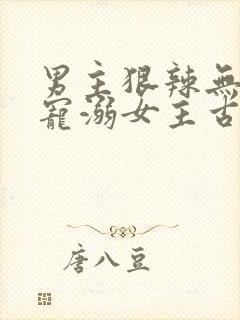 男主狠辣無
寵溺女主古
唐八豆